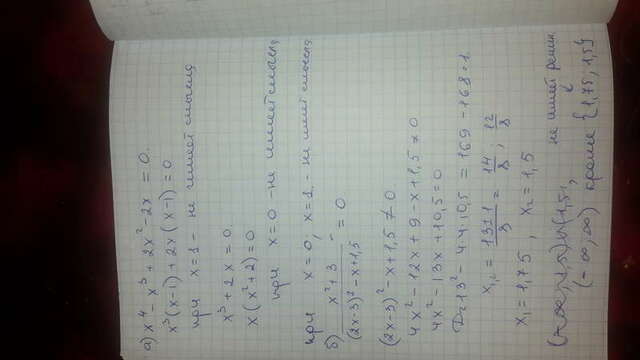 а) x⁴ - x³ + 2x² - 2x = 0.
x³(x-1) + 2x(x-1) = 0
при x = 1 - не имеет смысла
x³ + 2x = 0
x(x²+2) = 0
при x = 0 - не имеет смысла
при x = 0, x = 1, - не имеет смысла
б) x²+3 / (2x-3)² - x+1,5 = 0
(2x-3)² - x + 1,5 ≠ 0
4x² - 12x + 9 - x + 1,5 ≠ 0
4x² - 13x + 10,5 = 0
D = 13² - 4·4·10,5 = 169 - 168 = 1
x₁,₂ = 13±1 / 8 = 14 / 8 ; 12 / 8
x₁ = 1,75, x₂ = 1,5
не имеет решен.
(-∞, ∞) кроме {1,75; 1,5}